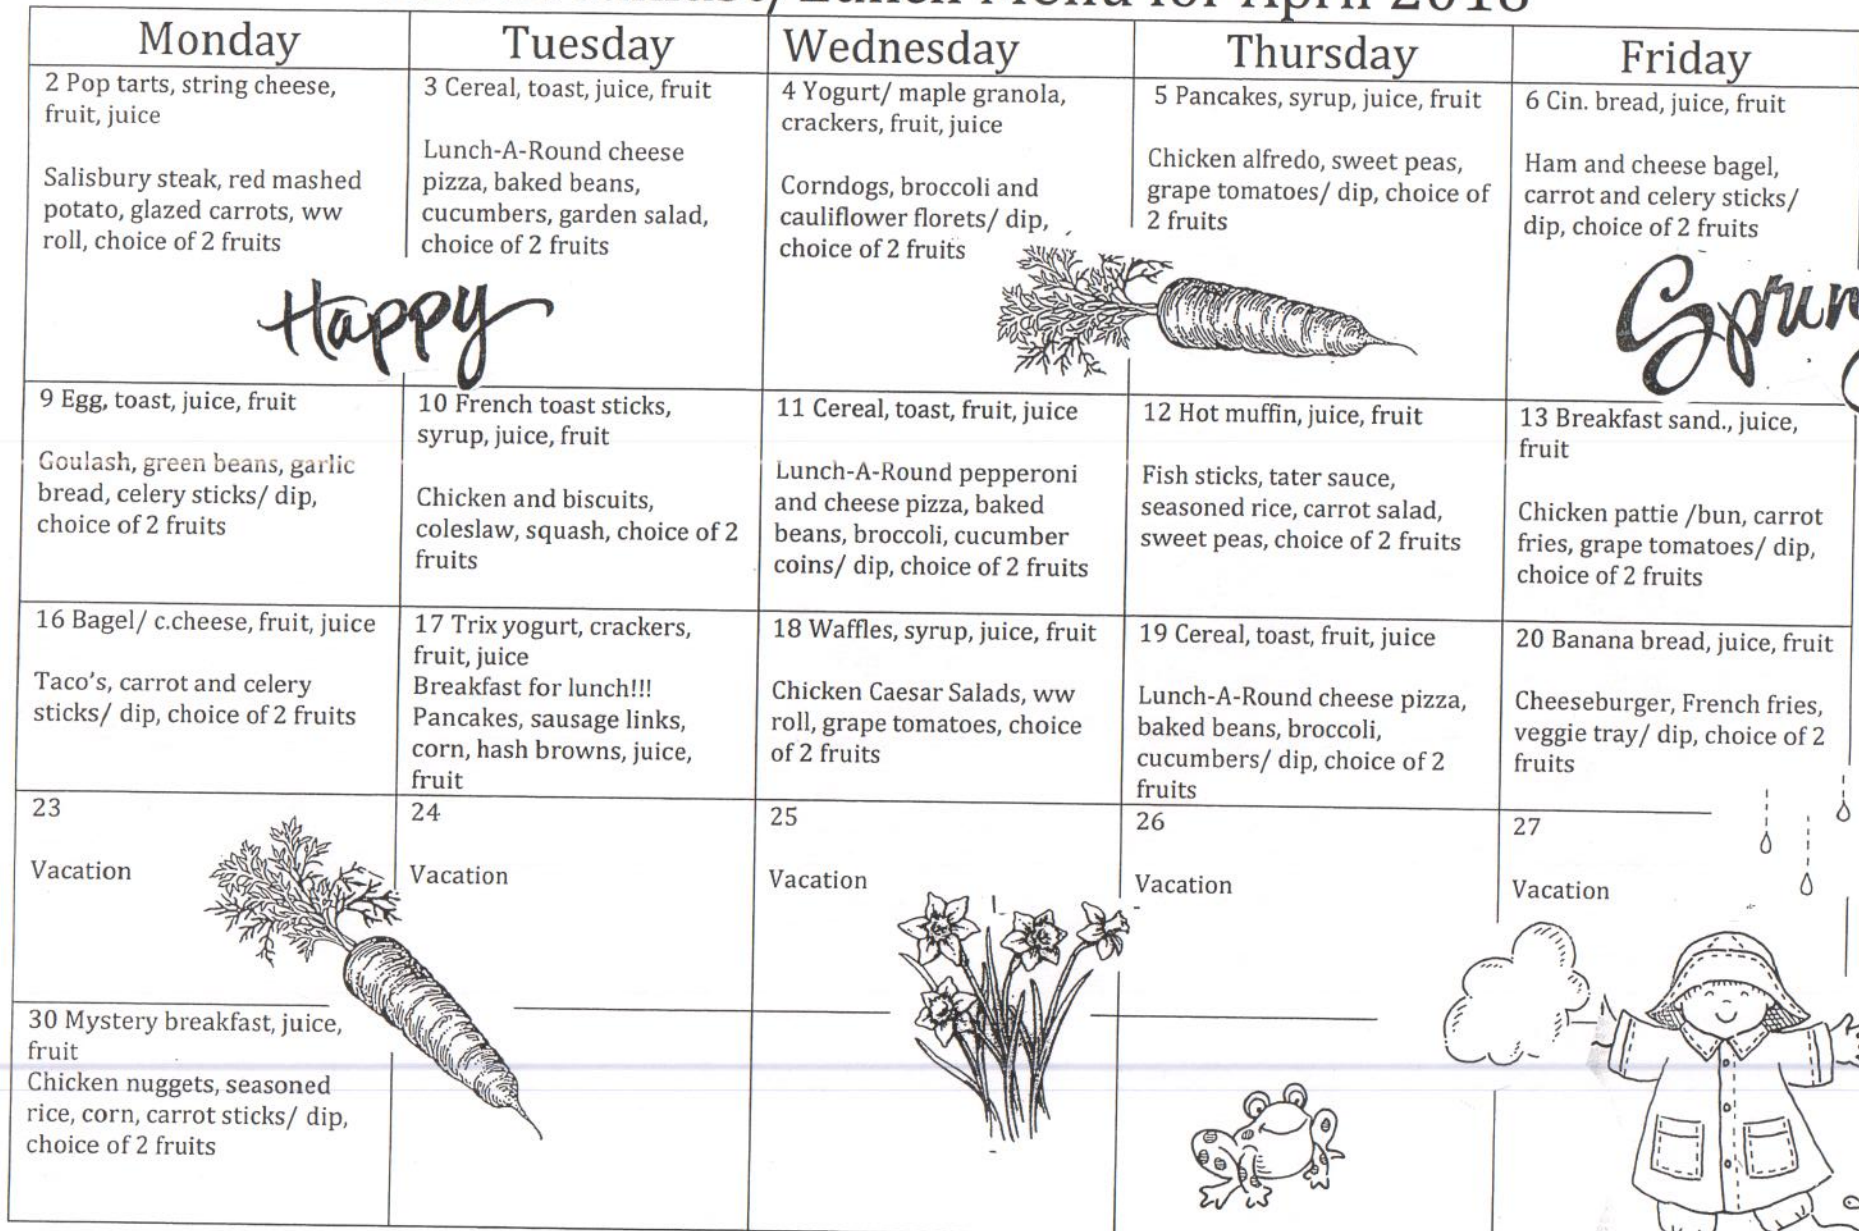 Lunch Menu for April 2018
Monday
Tuesday
Wednesday
Thursday
Friday
2 Pop tarts, string cheese,
fruit, juice
Salisbury steak, red mashed
potato, glazed carrots, ww
roll, choice of 2 fruits
3 Cereal, toast, juice, fruit
Lunch-A-Round cheese
pizza, baked beans,
cucumbers, garden salad,
choice of 2 fruits
4 Yogurt/ maple granola,
crackers, fruit, juice
Corndogs, broccoli and
cauliflower florets/ dip,
choice of 2 fruits
5 Pancakes, syrup, juice, fruit
Chicken alfredo, sweet peas,
grape tomatoes/ dip, choice of
2 fruits
6 Cin. bread, juice, fruit
Ham and cheese bagel,
carrot and celery sticks/
dip, choice of 2 fruits
Happy
9 Egg, toast, juice, fruit
Goulash, green beans, garlic
bread, celery sticks/ dip,
choice of 2 fruits
10 French toast sticks,
syrup, juice, fruit
Chicken and biscuits,
coleslaw, squash, choice of 2
fruits
11 Cereal, toast, fruit, juice
Lunch-A-Round pepperoni
and cheese pizza, baked
beans, broccoli, cucumber
coins/ dip, choice of 2 fruits
12 Hot muffin, juice, fruit
Fish sticks, tater sauce,
seasoned rice, carrot salad,
sweet peas, choice of 2 fruits
13 Breakfast sand., juice,
fruit
Chicken pattie /bun, carrot
fries, grape tomatoes/ dip,
choice of 2 fruits
16 Bagel/ c.cheese, fruit, juice
Taco's, carrot and celery
sticks/ dip, choice of 2 fruits
17 Trix yogurt, crackers,
fruit, juice
Breakfast for lunch!!!
Pancakes, sausage links,
corn, hash browns, juice,
fruit
18 Waffles, syrup, juice, fruit
Chicken Caesar Salads, ww
roll, grape tomatoes, choice
of 2 fruits
19 Cereal, toast, fruit, juice
Lunch-A-Round cheese pizza,
baked beans, broccoli,
cucumbers/ dip, choice of 2
fruits
20 Banana bread, juice, fruit
Cheeseburger, French fries,
veggie tray/ dip, choice of 2
fruits
23
Vacation
24
Vacation
25
Vacation
26
Vacation
27
Vacation
30 Mystery breakfast, juice,
fruit
Chicken nuggets, seasoned
rice, corn, carrot sticks/ dip,
choice of 2 fruits